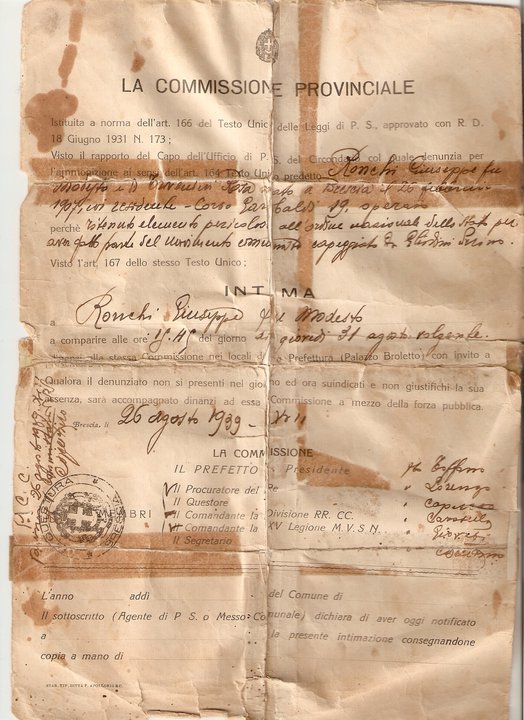 LA COMMISSIONE PROVINCIALE
Istituita a norma dell'art. 166 del Testo Unico delle Leggi di P. S., approvato con R. D.
18 Giugno 1931 N. 173;
Visto il rapporto del Capo dell'Ufficio di P. S. del Circondario col quale denunzia per
l'ammonizione ai sensi dell'art. 164 Testo Unico predetto Ronchi Giuseppe fu
Modesto e di nato a Brescia il 26
1907, ivi residente - Corso Garibaldi 19, operaio
perchè ritenuto elemento pericoloso all'ordine nazionale dello Stato per
aver fatto parte del movimento comunista capeggiato da
Visto l'art. 167 dello stesso Testo Unico;
INTIMA
a Ronchi Giuseppe fu Modesto
a comparire alle ore 15.45 del giorno di giovedì 31 agosto volgente.
dinanzi alla stessa Commissione nei locali della Prefettura (Palazzo Broletto) con invito a
qualora il denunziato non si presenti nel giorno ed ora suindicati e non giustifichi la sua
assenza, sarà accompagnato dinanzi ad essa Commissione a mezzo della forza pubblica.
Brescia, li 26 agosto 1939 -
LA COMMISSIONE
IL PREFETTO - Presidente
Il Procuratore del Re
Il Questore
MEMBRI
Il Comandante la Divisione RR. CC.
Il Comandante la XV Legione M. V. S. N.
Il Segretario
P. C. C.
26 agosto 1939
QUESTURA
BRESCIA
L'anno addì del Comune di
Il sottoscritto (Agente di P. S. o Messo Comunale) dichiara di aver oggi notificato
a la presente intimazione consegnandone
copia a mano di